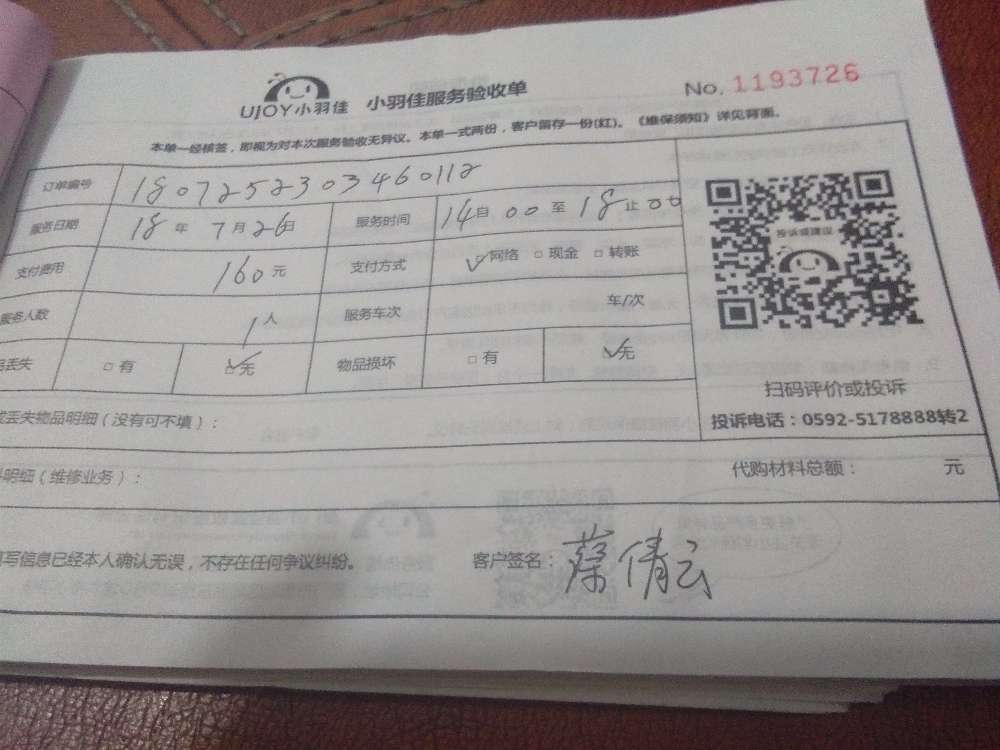 UJOY小羽佳 小羽佳服务验收单 No. 1193726
本单一经核签，即视为对本次服务验收无异议。本单一式两份，客户留存一份(红)。《维保须知》详见背面。
订单编号 1807252303460112
服务日期 18年 7月26日 服务时间 14自00至18止00
支付费用 160元 支付方式 ☑网络 □现金 □转账
服务人数 1人 服务车次 车/次
品丢失 □有 ☑无 物品损坏 □有 ☑无
投诉或建议
扫码评价或投诉
投诉电话：0592-5178888转2
或丢失物品明细（没有可不填）：
明细（维修业务）： 代购材料总额： 元
填写信息已经本人确认无误，不存在任何争议纠纷。 客户签名：蔡倩云